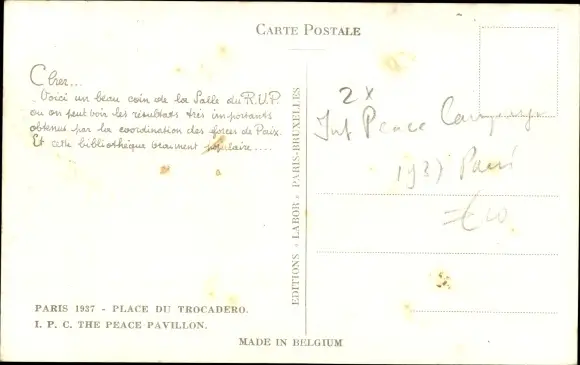 CARTE POSTALE
Cher...
Voici un beau coin de la Salle du R.U.P.
ou on peut voir les résultats très importants
obtenus par la coordination des forces de Paix.
Et cette bibliothèque vraiment populaire....
EDITIONS « LABOR » PARIS-BRUXELLES
2x
Int Peace Campaign
1937 Paris
PARIS 1937 - PLACE DU TROCADERO.
I. P. C. THE PEACE PAVILLON.
MADE IN BELGIUM